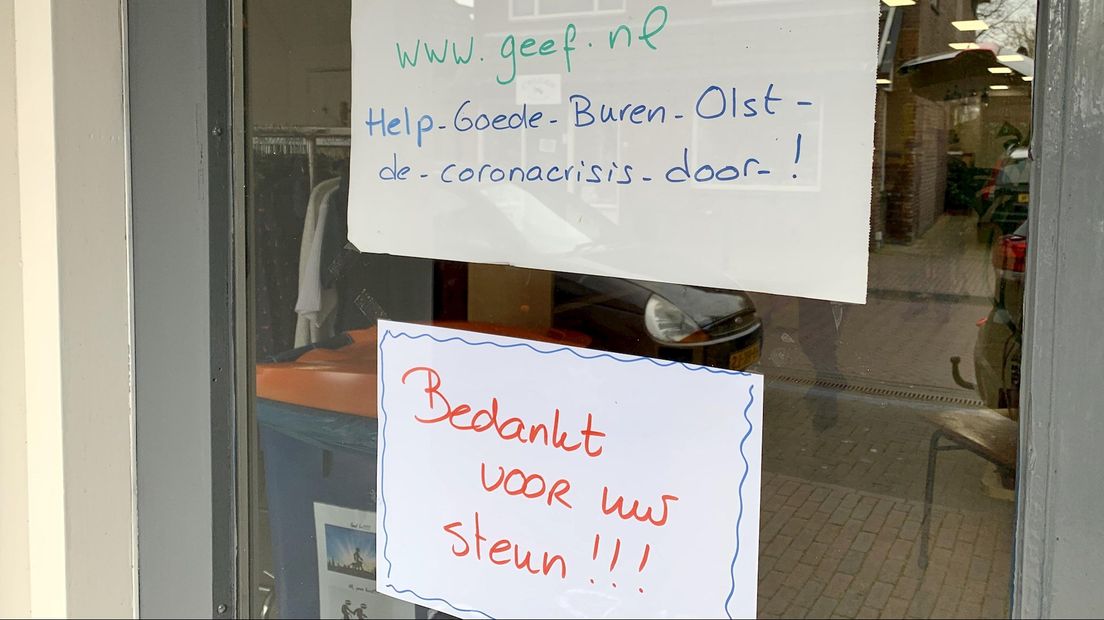 www.geef.nl
Help-Goede-Buren-Olst-
de-coronacrisis-door-!
Bedankt
voor uw
steun!!!